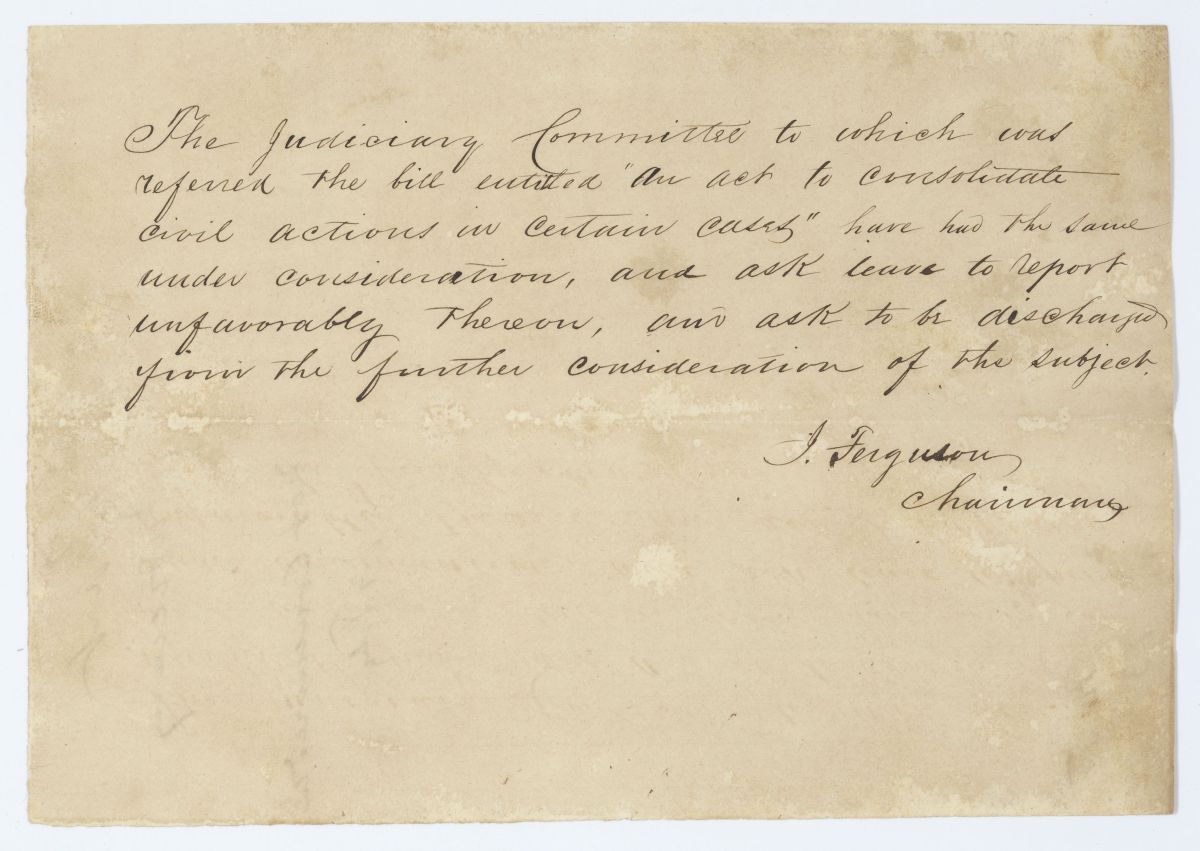 The Judiciary Committee to which was
referred the bill entitled "An act to consolidate
civil actions in certain cases" have had the same
under consideration, and ask leave to report
unfavorably thereon, and ask to be discharged
from the further consideration of the subject.
J. Ferguson
Chairman